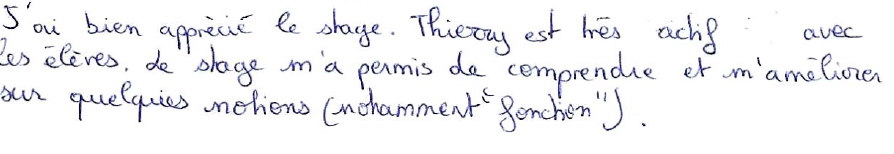 J'ai bien apprécié le stage. Thierry est très actif avec
les élèves. Le stage m'a permis de comprendre et m'améliorer
sur quelques notions (nothamment "fonction").